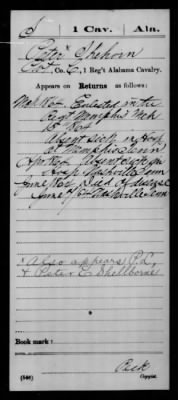 S | 1 Cav. | Ala.
Peter Shehorn
Co. C, 1 Reg't Alabama Cavalry.
Appears on Returns as follows:
Mch 1864 Enlisted in the
Regt Memphis Mch
1864
Absent sick in Hosp
at Memphis Tenn
Apr 1864 Absent sick in
Hosp Nashville Tenn
June 1864 Died of disease
June Nashville Tenn
Also appears P. L.
& Peter C. Shelborne
Book mark:
Peck
(546) Copyist.